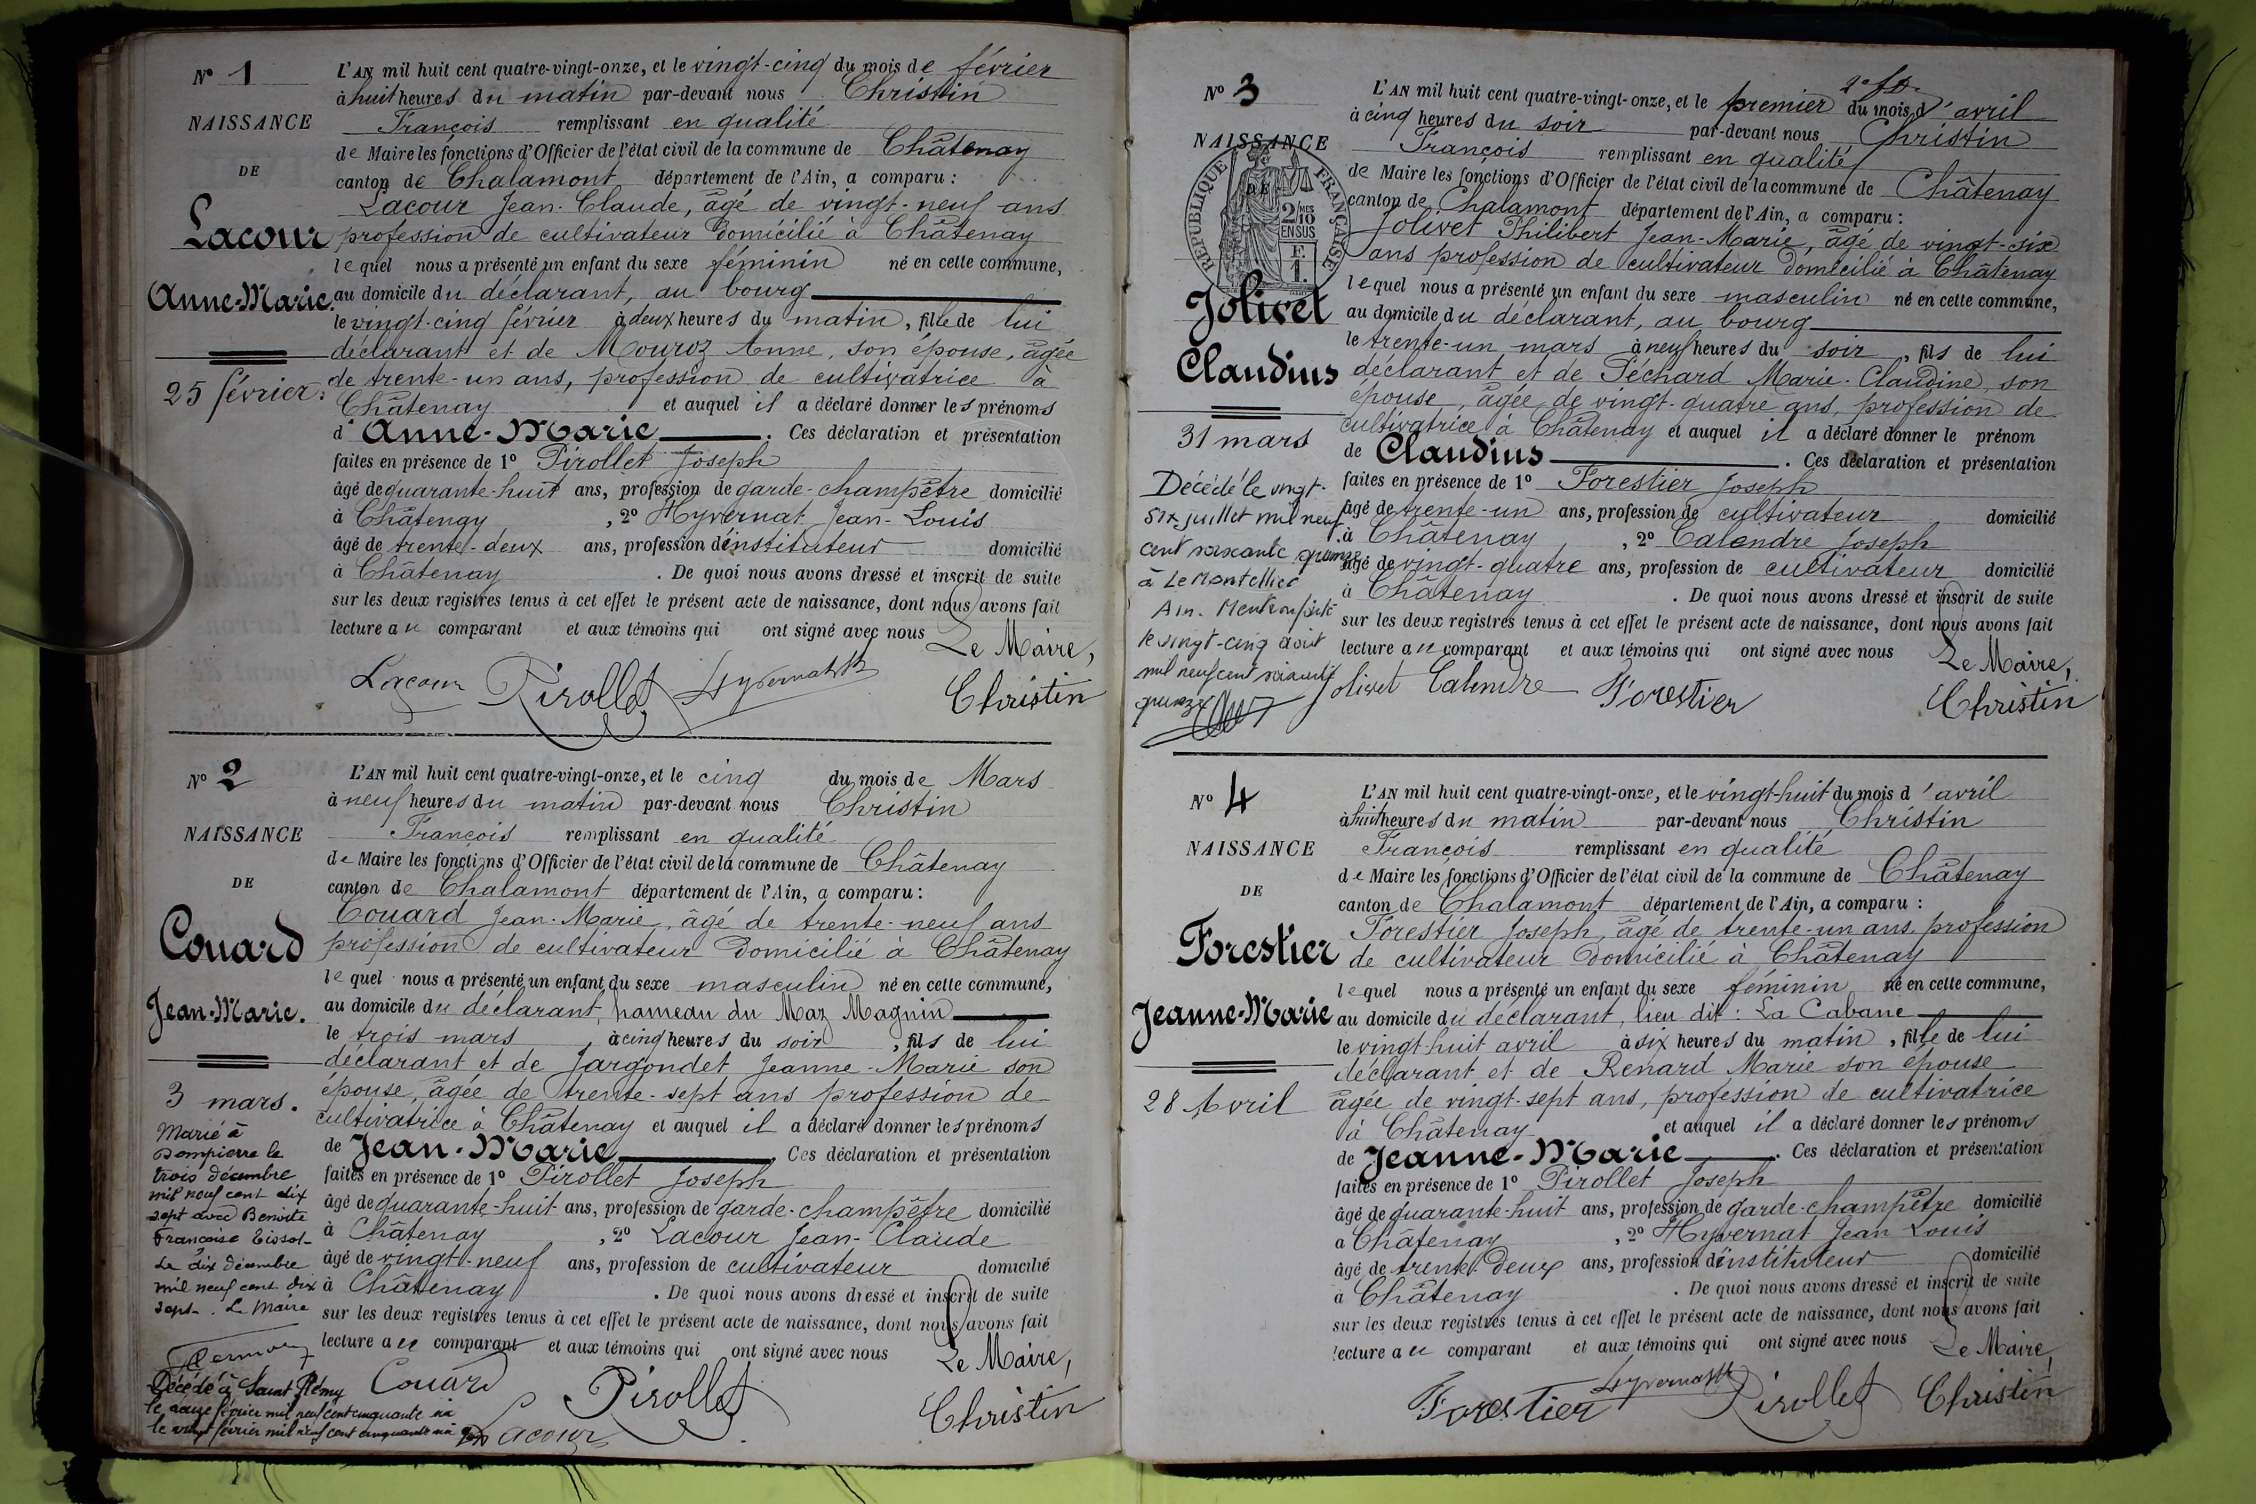 N° 1
NAISSANCE
DE
Lacour
Anne-Marie.
25 février.
L'AN mil huit cent quatre-vingt-onze, et le vingt-cinq du mois de février
à huit heures du matin par-devant nous Christin
François remplissant en qualité
de Maire les fonctions d'Officier de l'état civil de la commune de Châtenay
canton de Chalamont département de l'Ain, a comparu :
Lacour Jean-Claude, âgé de vingt-neuf ans
profession de cultivateur domicilié à Châtenay
lequel nous a présenté un enfant du sexe féminin né en cette commune,
au domicile du déclarant, au bourg
le vingt-cinq février à deux heures du matin, fille de lui
déclarant et de Mouroz Anne, son épouse, âgée
de trente-un ans, profession de cultivatrice à
Châtenay et auquel il a déclaré donner les prénoms
d'Anne-Marie. Ces déclaration et présentation
faites en présence de 1° Pirollet Joseph
âgé de quarante-huit ans, profession de garde-champêtre domicilié
à Châtenay, 2° Hyvernat Jean-Louis
âgé de trente-deux ans, profession d'instituteur domicilié
à Châtenay. De quoi nous avons dressé et inscrit de suite
sur les deux registres tenus à cet effet le présent acte de naissance, dont nous avons fait
lecture au comparant et aux témoins qui ont signé avec nous
Le Maire,
Lacour Pirollet Hyvernat Christin
N° 2
NAISSANCE
DE
Couard
Jean-Marie.
3 mars.
Marié à
Dompierre le
trois décembre
mil neuf cent dix
sept avec Benoite
Françoise Tissot
Le dix décembre
mil neuf cent dix
sept. Le Maire
Décédé à Saint Rémy
le février mil neuf cent cinquante six
le vingt février mil neuf cent cinquante six
L'AN mil huit cent quatre-vingt-onze, et le cinq du mois de Mars
à neuf heures du matin par-devant nous Christin
François remplissant en qualité
de Maire les fonctions d'Officier de l'état civil de la commune de Châtenay
canton de Chalamont département de l'Ain, a comparu :
Couard Jean-Marie, âgé de trente-neuf ans
profession de cultivateur domicilié à Châtenay
lequel nous a présenté un enfant du sexe masculin né en cette commune,
au domicile du déclarant, hameau du Maz Magnin
le trois mars à cinq heures du soir, fils de lui
déclarant et de Jargondet Jeanne-Marie son
épouse, âgée de trente-sept ans profession de
cultivatrice à Châtenay et auquel il a déclaré donner les prénoms
de Jean-Marie. Ces déclaration et présentation
faites en présence de 1° Pirollet Joseph
âgé de quarante-huit ans, profession de garde-champêtre domicilié
à Châtenay, 2° Lacour Jean-Claude
âgé de vingt-neuf ans, profession de cultivateur domicilié
à Châtenay. De quoi nous avons dressé et inscrit de suite
sur les deux registres tenus à cet effet le présent acte de naissance, dont nous avons fait
lecture au comparant et aux témoins qui ont signé avec nous
Le Maire,
Couard Pirollet Christin
Lacour
N° 3
NAISSANCE
DE
RÉPUBLIQUE FRANÇAISE
2/10 MES
EN SUS
F.
1.
Jolivet
Claudius
31 mars
Décédé le vingt-
six juillet mil neuf
cent soixante quinze
à Le Montellier
Ain. Mention faite
le vingt-cinq août
mil neuf cent soixante
quinze
L'AN mil huit cent quatre-vingt-onze, et le premier du mois d'avril
à cinq heures du soir par-devant nous Christin
François remplissant en qualité
de Maire les fonctions d'Officier de l'état civil de la commune de Châtenay
canton de Chalamont département de l'Ain, a comparu :
Jolivet Philibert Jean-Marie, âgé de vingt-six
ans profession de cultivateur domicilié à Châtenay
lequel nous a présenté un enfant du sexe masculin né en cette commune,
au domicile du déclarant, au bourg
le trente-un mars à neuf heures du soir, fils de lui
déclarant et de Péchard Marie-Claudine, son
épouse, âgée de vingt-quatre ans, profession de
cultivatrice à Châtenay et auquel il a déclaré donner le prénom
de Claudius. Ces déclaration et présentation
faites en présence de 1° Forestier Joseph
âgé de trente-un ans, profession de cultivateur domicilié
à Châtenay, 2° Calendre Joseph
âgé de vingt-quatre ans, profession de cultivateur domicilié
à Châtenay. De quoi nous avons dressé et inscrit de suite
sur les deux registres tenus à cet effet le présent acte de naissance, dont nous avons fait
lecture au comparant et aux témoins qui ont signé avec nous
Le Maire,
Jolivet Calendre Forestier Christin
N° 4
NAISSANCE
DE
Forestier
Jeanne-Marie
28 Avril
L'AN mil huit cent quatre-vingt-onze, et le vingt-huit du mois d'avril
à huit heures du matin par-devant nous Christin
François remplissant en qualité
de Maire les fonctions d'Officier de l'état civil de la commune de Châtenay
canton de Chalamont département de l'Ain, a comparu :
Forestier Joseph, âgé de trente-un ans, profession
de cultivateur domicilié à Châtenay
lequel nous a présenté un enfant du sexe féminin né en cette commune,
au domicile du déclarant, lieu dit : La Cabane
le vingt-huit avril à six heures du matin, fille de lui
déclarant et de Renard Marie son épouse
âgée de vingt-sept ans, profession de cultivatrice
à Châtenay et auquel il a déclaré donner les prénoms
de Jeanne-Marie. Ces déclaration et présentation
faites en présence de 1° Pirollet Joseph
âgé de quarante-huit ans, profession de garde-champêtre domicilié
à Châtenay, 2° Hyvernat Jean Louis
âgé de trente-deux ans, profession d'instituteur domicilié
à Châtenay. De quoi nous avons dressé et inscrit de suite
sur les deux registres tenus à cet effet le présent acte de naissance, dont nous avons fait
lecture au comparant et aux témoins qui ont signé avec nous
Le Maire,
Forestier Hyvernat Pirollet Christin